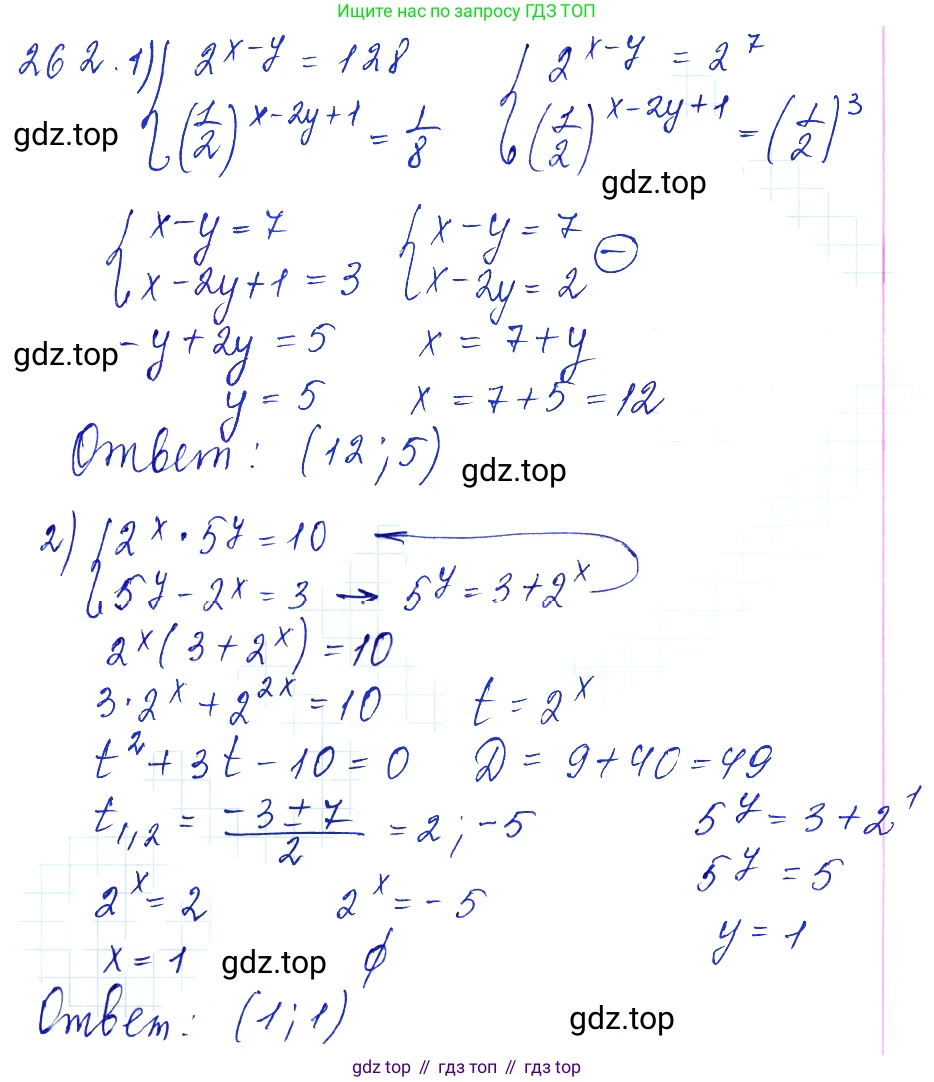 Ищите нас по запросу ГДЗ ТОП
262. 1) { 2^(x-y) = 128   { 2^(x-y) = 2^7
(1/2)^(x-2y+1) = 1/8   (1/2)^(x-2y+1) = (1/2)^3
gdz.top
gdz.top
{ x-y = 7   { x-y = 7
x-2y+1 = 3   x-2y = 2 ⊖
gdz.top -y+2y = 5   x = 7+y
y = 5   x = 7+5 = 12
Ответ: (12; 5) gdz.top
2) { 2^x · 5^y = 10 ←
5^y - 2^x = 3 → 5^y = 3+2^x
2^x(3+2^x) = 10
3·2^x + 2^(2x) = 10   t = 2^x
t^2 + 3t - 10 = 0   D = 9+40 = 49
t_1,2 = (-3±7)/2 = 2; -5   5^y = 3+2^1
5^y = 5
2^x = 2   2^x = -5
y = 1
x = 1 gdz.top ∅
Ответ: (1; 1) gdz.top
gdz top // гдз топ // gdz.top